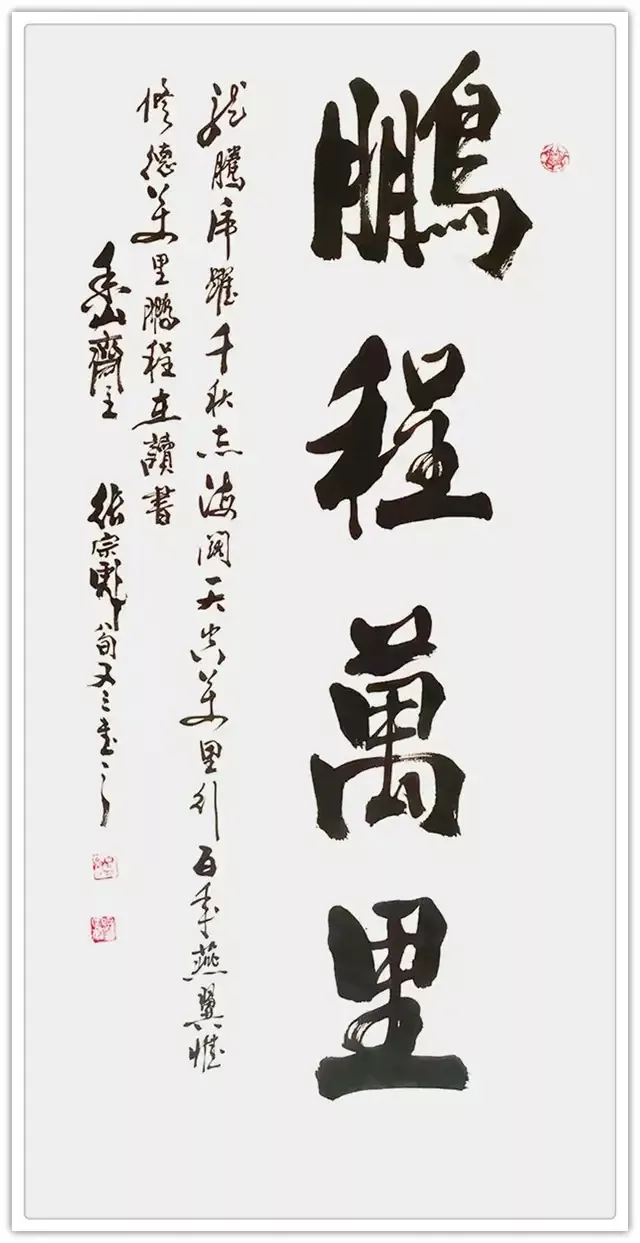 鵬程萬里
龍騰虎躍千秋志海闊天空萬里行百年燕翼惟
修德萬里鵬程在讀書
齋主 張宗 八旬又三書之